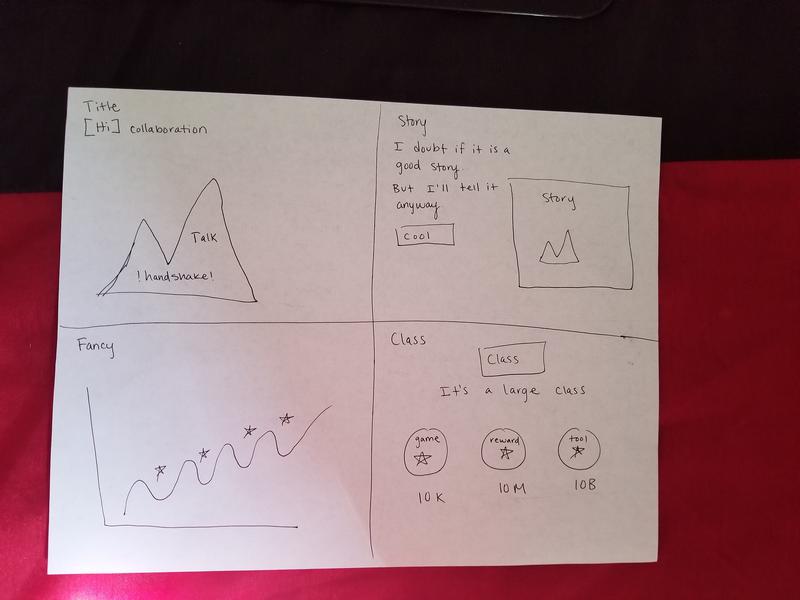 Title
[Hi] collaboration
Talk
!handshake!
Story
I doubt if it is a
good story.
But I'll tell it
anyway.
Cool
Story
Fancy
Class
Class
It's a large class
game
reward
tool
10K
10M
10B